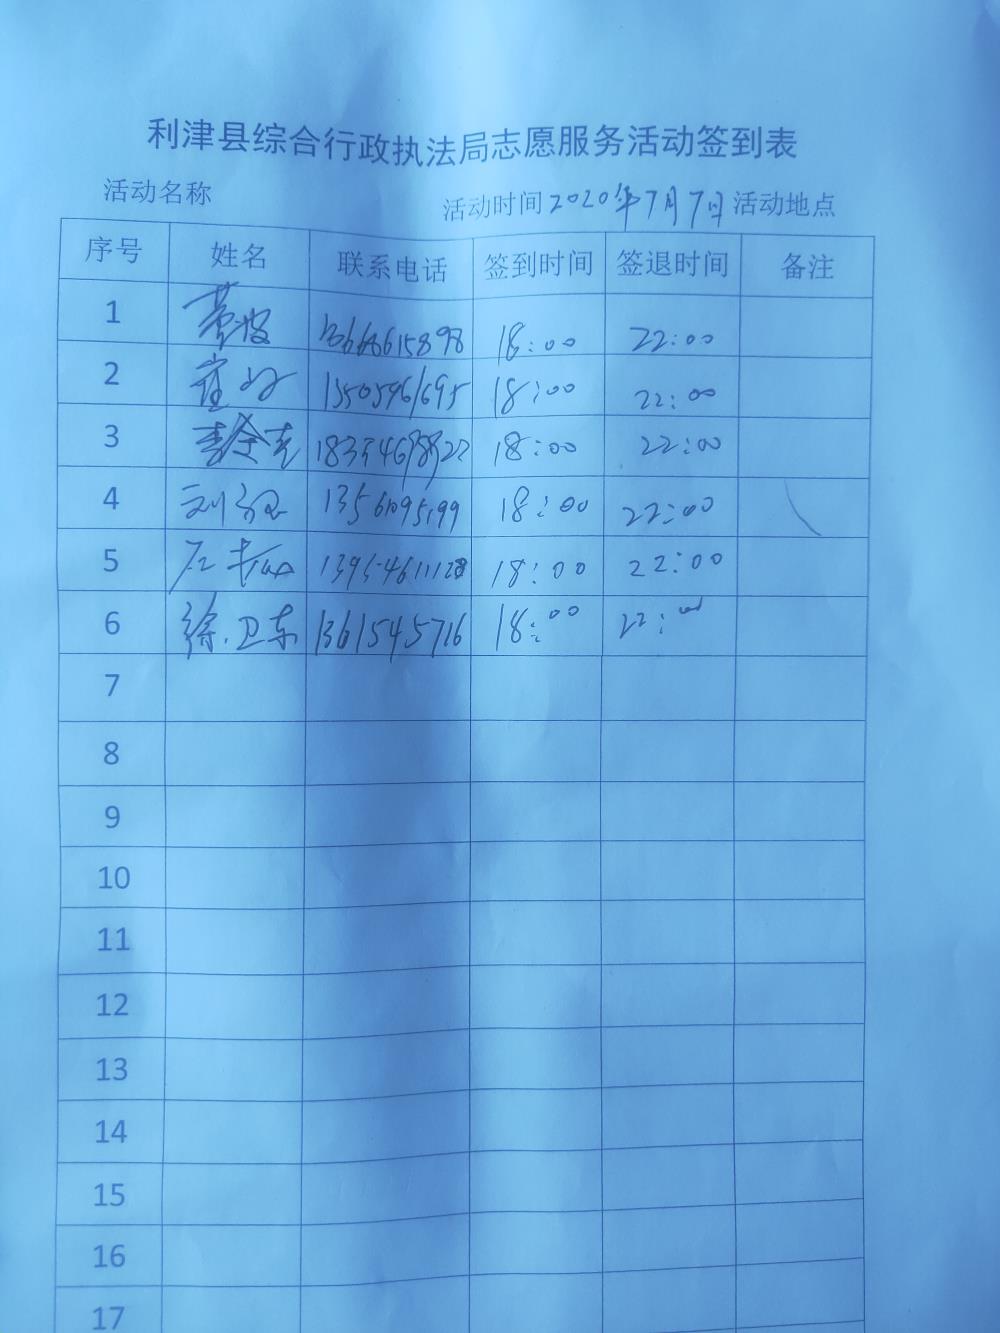 利津县综合行政执法局志愿服务活动签到表
活动名称 活动时间 2020年7月7日 活动地点
序号 姓名 联系电话 签到时间 签退时间 备注
1 18:00 22:00
2 崔 13505461695 18:00 22:00
3 18:00 22:00
4 刘 18:00 22:00
5 18:00 22:00
6 徐卫东 1361545716 18:00 22:00
7
8
9
10
11
12
13
14
15
16
17